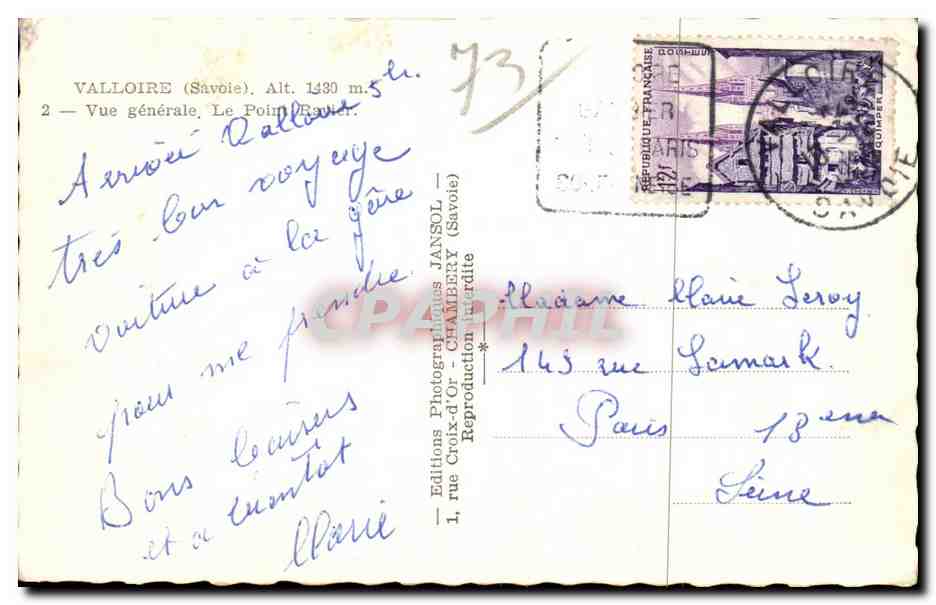 VALLOIRE (Savoie). Alt. 1430 m.
2 — Vue générale. Le Point Ravier.
73
Arrivée Valloire 5 h.
très bon voyage
voiture à la gare
pour me prendre.
Bons baisers
et a bientot
Marie
— Editions Photographiques JANSOL —
1, rue Croix-d'Or - CHAMBERY (Savoie)
Reproduction interdite
*
CPAPHIL
POSTES
RÉPUBLIQUE FRANÇAISE
12f
QUIMPER
PARIS
Madame Marie Leroy
143 rue Lamark.
Paris 18 eme
Seine